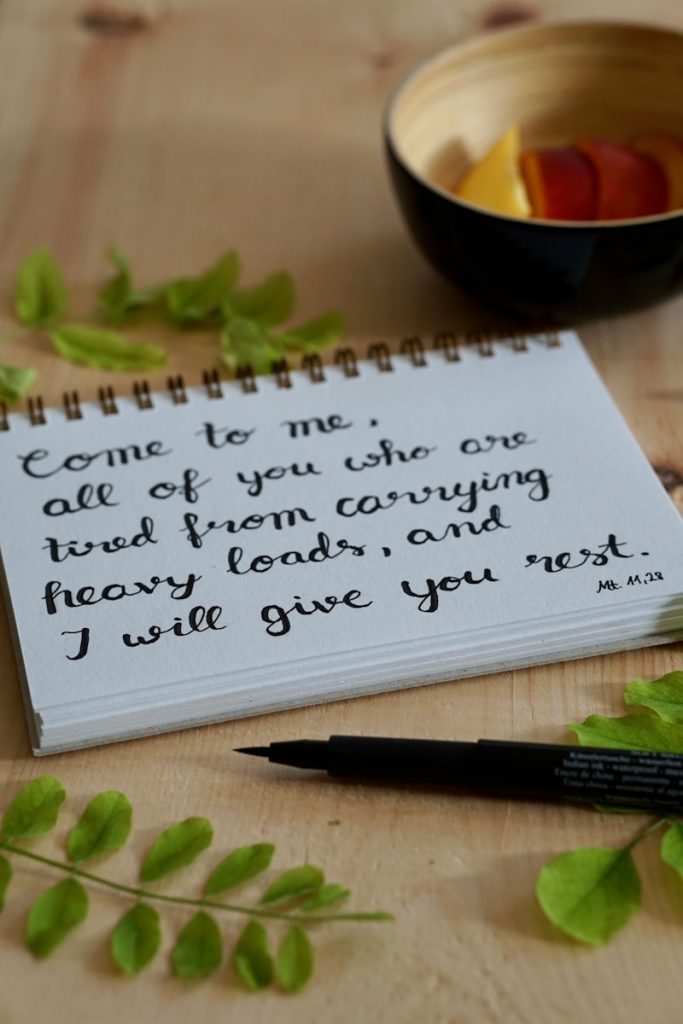 Come to me,
all of you who are
tired from carrying
heavy loads, and
I will give you rest.
Mt. 11,28
Indian ink - waterproof
Encre de chine
Tinta china